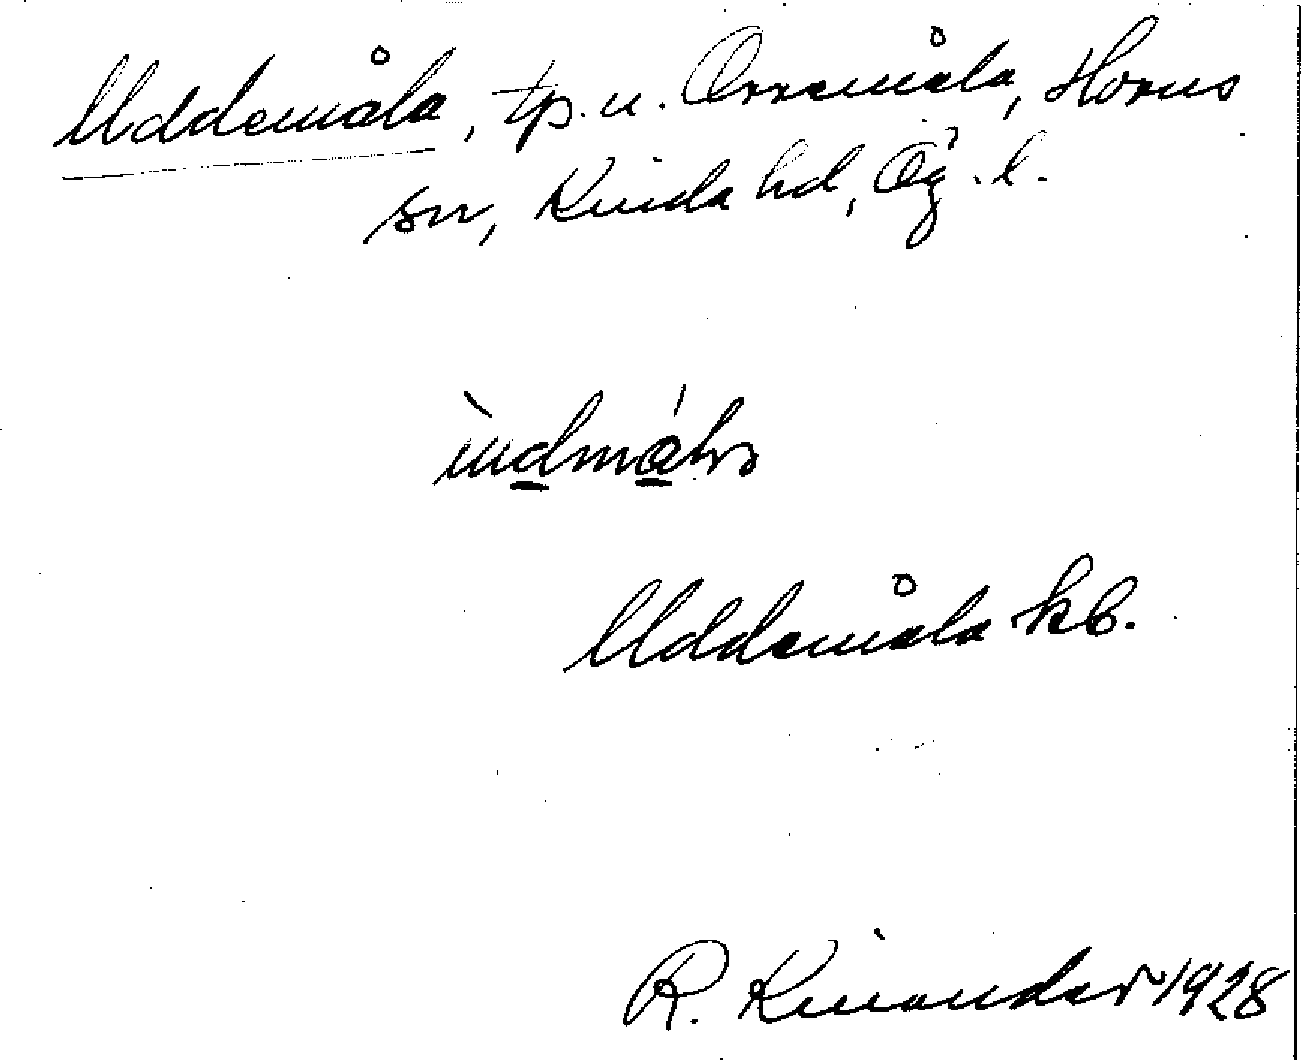 Uddemåla, tp. u. Orremåla, Horns
sn, Kinda hd, Ög. l.
Uddemåla kb.
R. Kinander 1928